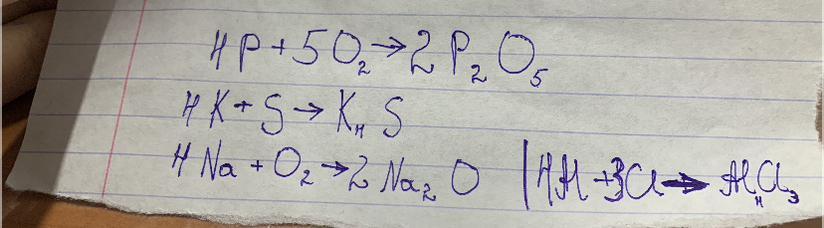 4P + 5O₂ → 2P₂O₅
4K + S → K₄S
4Na + O₂ → 2Na₂O | 4Al + 3Cl → Al₄Cl₃